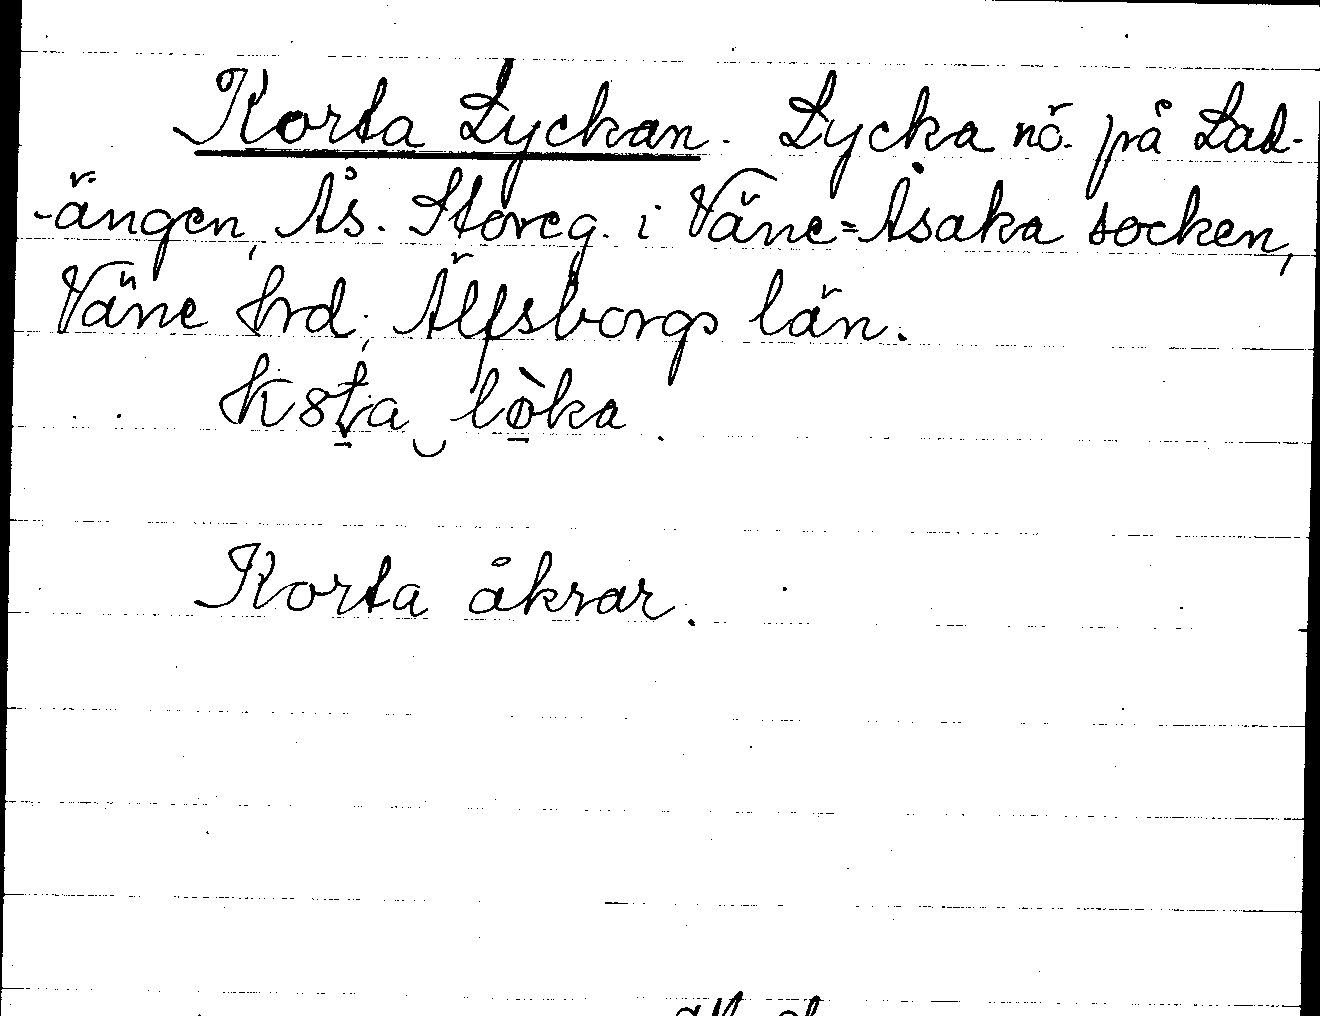 Korta Lyckan. Lycka nö. på Lad-
-ängen, Ås. Storeg. i Väne=Åsaka socken,
Väne hrd, Älfsborgs län.
Korta åkrar.